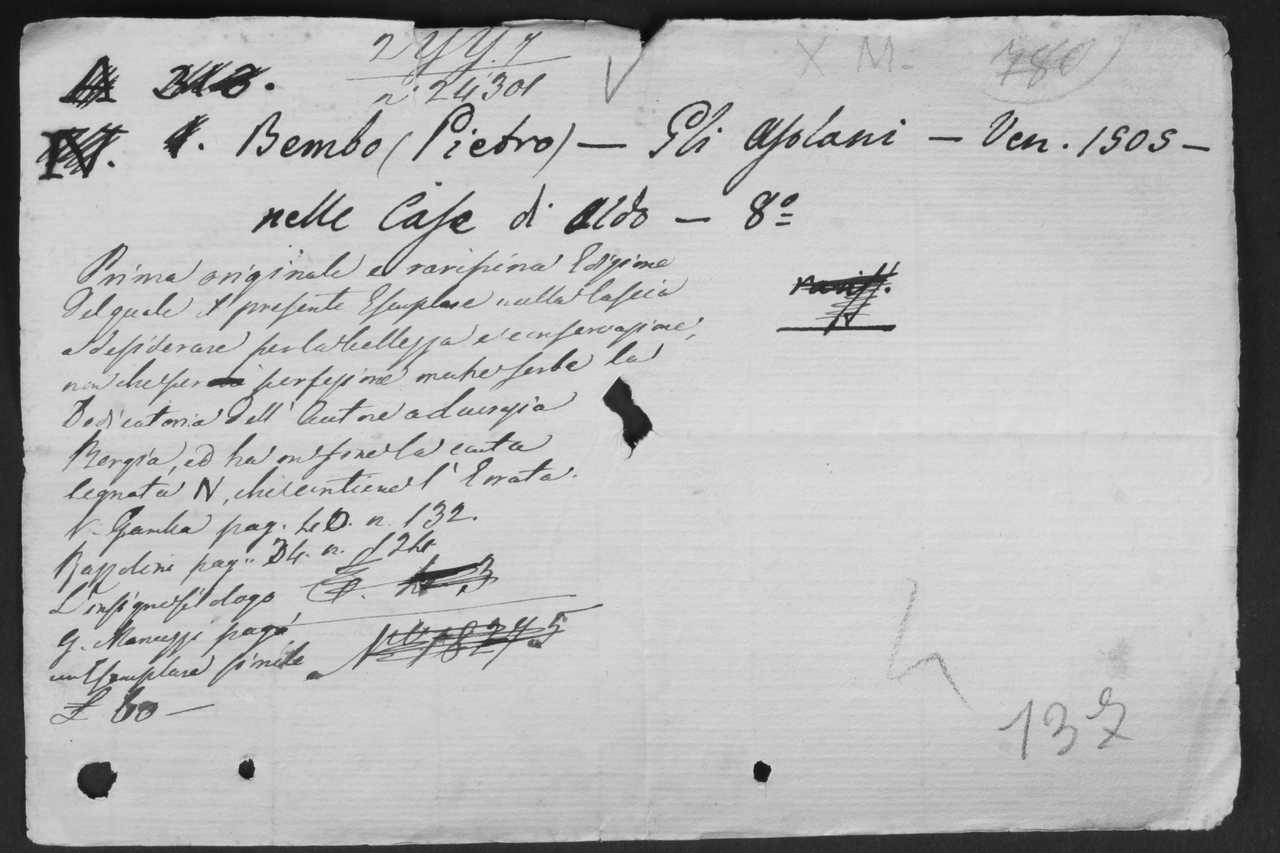 2 YY. 7
X M. 780
n.° 24301
IV. 1. Bembo (Pietro) — Gli Asolani — Ven. 1505 —
nelle Case di Aldo — 8.°
Prima originale e rarissima Edizione
del quale il presente Esemplare nulla lascia
a desiderare per la bellezza e conservazione,
non che per perfezione mentre serba la
Dedicatoria dell' Autore a Lucrezia
Borgia, ed ha in fine la carta
segnata N, che contiene l' Errata.
V. Gamba pag. n. 132.
pag. 34. n.
L'insigne filologo
G. Manuzzi pagò
un Esemplare simile
£ 60 —
137